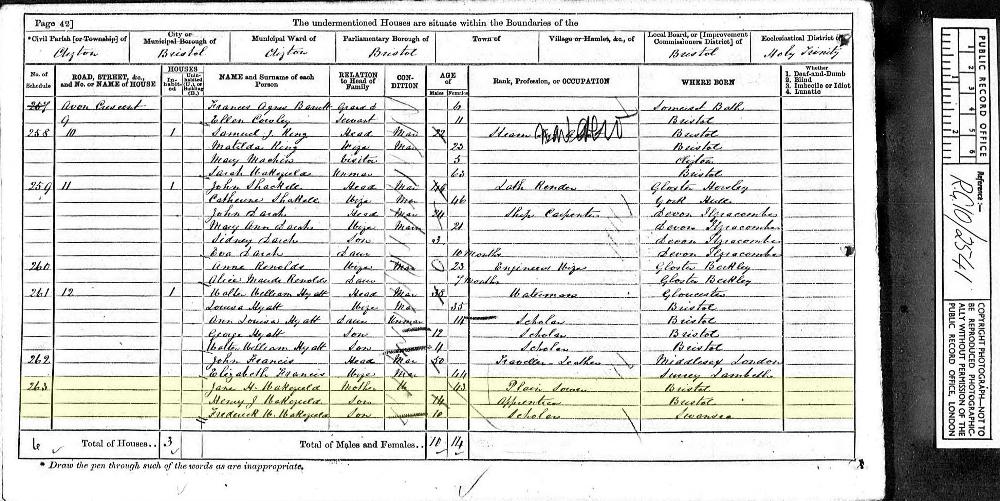 Page 42] The undermentioned Houses are situate within the Boundaries of the
*Civil Parish [or Township] of City or Municipal Borough of Municipal Ward of Parliamentary Borough of Town of Village or Hamlet, &c., of Local Board, or [Improvement Commissioners District] of Ecclesiastical District of
Clifton Bristol Clifton Bristol Bristol Holy Trinity
No. of Schedule ROAD, STREET, &c., and No. or NAME of HOUSE HOUSES Inhabited Uninhabited (U.), or Building (B.) NAME and Surname of each Person RELATION to Head of Family CONDITION AGE of Males Females Rank, Profession, or OCCUPATION WHERE BORN Whether 1. Deaf-and-Dumb 2. Blind 3. Imbecile or Idiot 4. Lunatic
257 Avon Crescent Frances Agnes Grand d 6 Somerset Bath
9 Ellen Cowley Servant 11 Bristol
258 10 1 Samuel J. King Head Mar 22 Steam Bristol
Matilda King Wife Mar 23 Bristol
Mary Visitor 5 Clifton
Sarah Wakefield Unmar 63 Bristol
259 11 1 John Shackell Head Mar 46 Lath Render Gloster
Catherine Shakell Wife Mar 46
John Darch Head Mar 24 Ship Carpenter Devon Ilfracombe
Mary Ann Darch Wife Mar 21 Devon Ilfracombe
Sidney Darch Son 3 Devon Ilfracombe
Eva Darch Daur 10 Months Devon Ilfracombe
260 Anna Renolds Wife Mar 23 Engineers Wife Gloster Berkley
Alice Maude Renolds Daur 7 Months Gloster Berkley
261 12 1 Walter William Hyatt Head Mar 38 Waterman Gloucester
Louisa Hyatt Wife Mar 35 Bristol
Ann Louisa Hyatt Daur Unmar 14 Scholar Bristol
George Hyatt Son 12 Scholar Bristol
Walter William Hyatt Son 4 Scholar Bristol
262 John Francis Head Mar 50 Traveller Leather Middlesex London
Elizabeth Francis Wife Mar 44 Surrey Lambeth
263 Jane H. Wakefield Mother W 43 Plain Sower Bristol
Henry J Wakefield Son 14 Apprentice Bristol
Frederick W. Wakefield Son 10 Scholar Swansea
6 Total of Houses.. 3 Total of Males and Females.. 10 14
* Draw the pen through such of the words as are inappropriate.
PUBLIC RECORD OFFICE
1 2 3 4 5 6
Reference:-
RG 10/2541
COPYRIGHT PHOTOGRAPH—NOT TO BE REPRODUCED PHOTOGRAPHICALLY WITHOUT PERMISSION OF THE PUBLIC RECORD OFFICE, LONDON